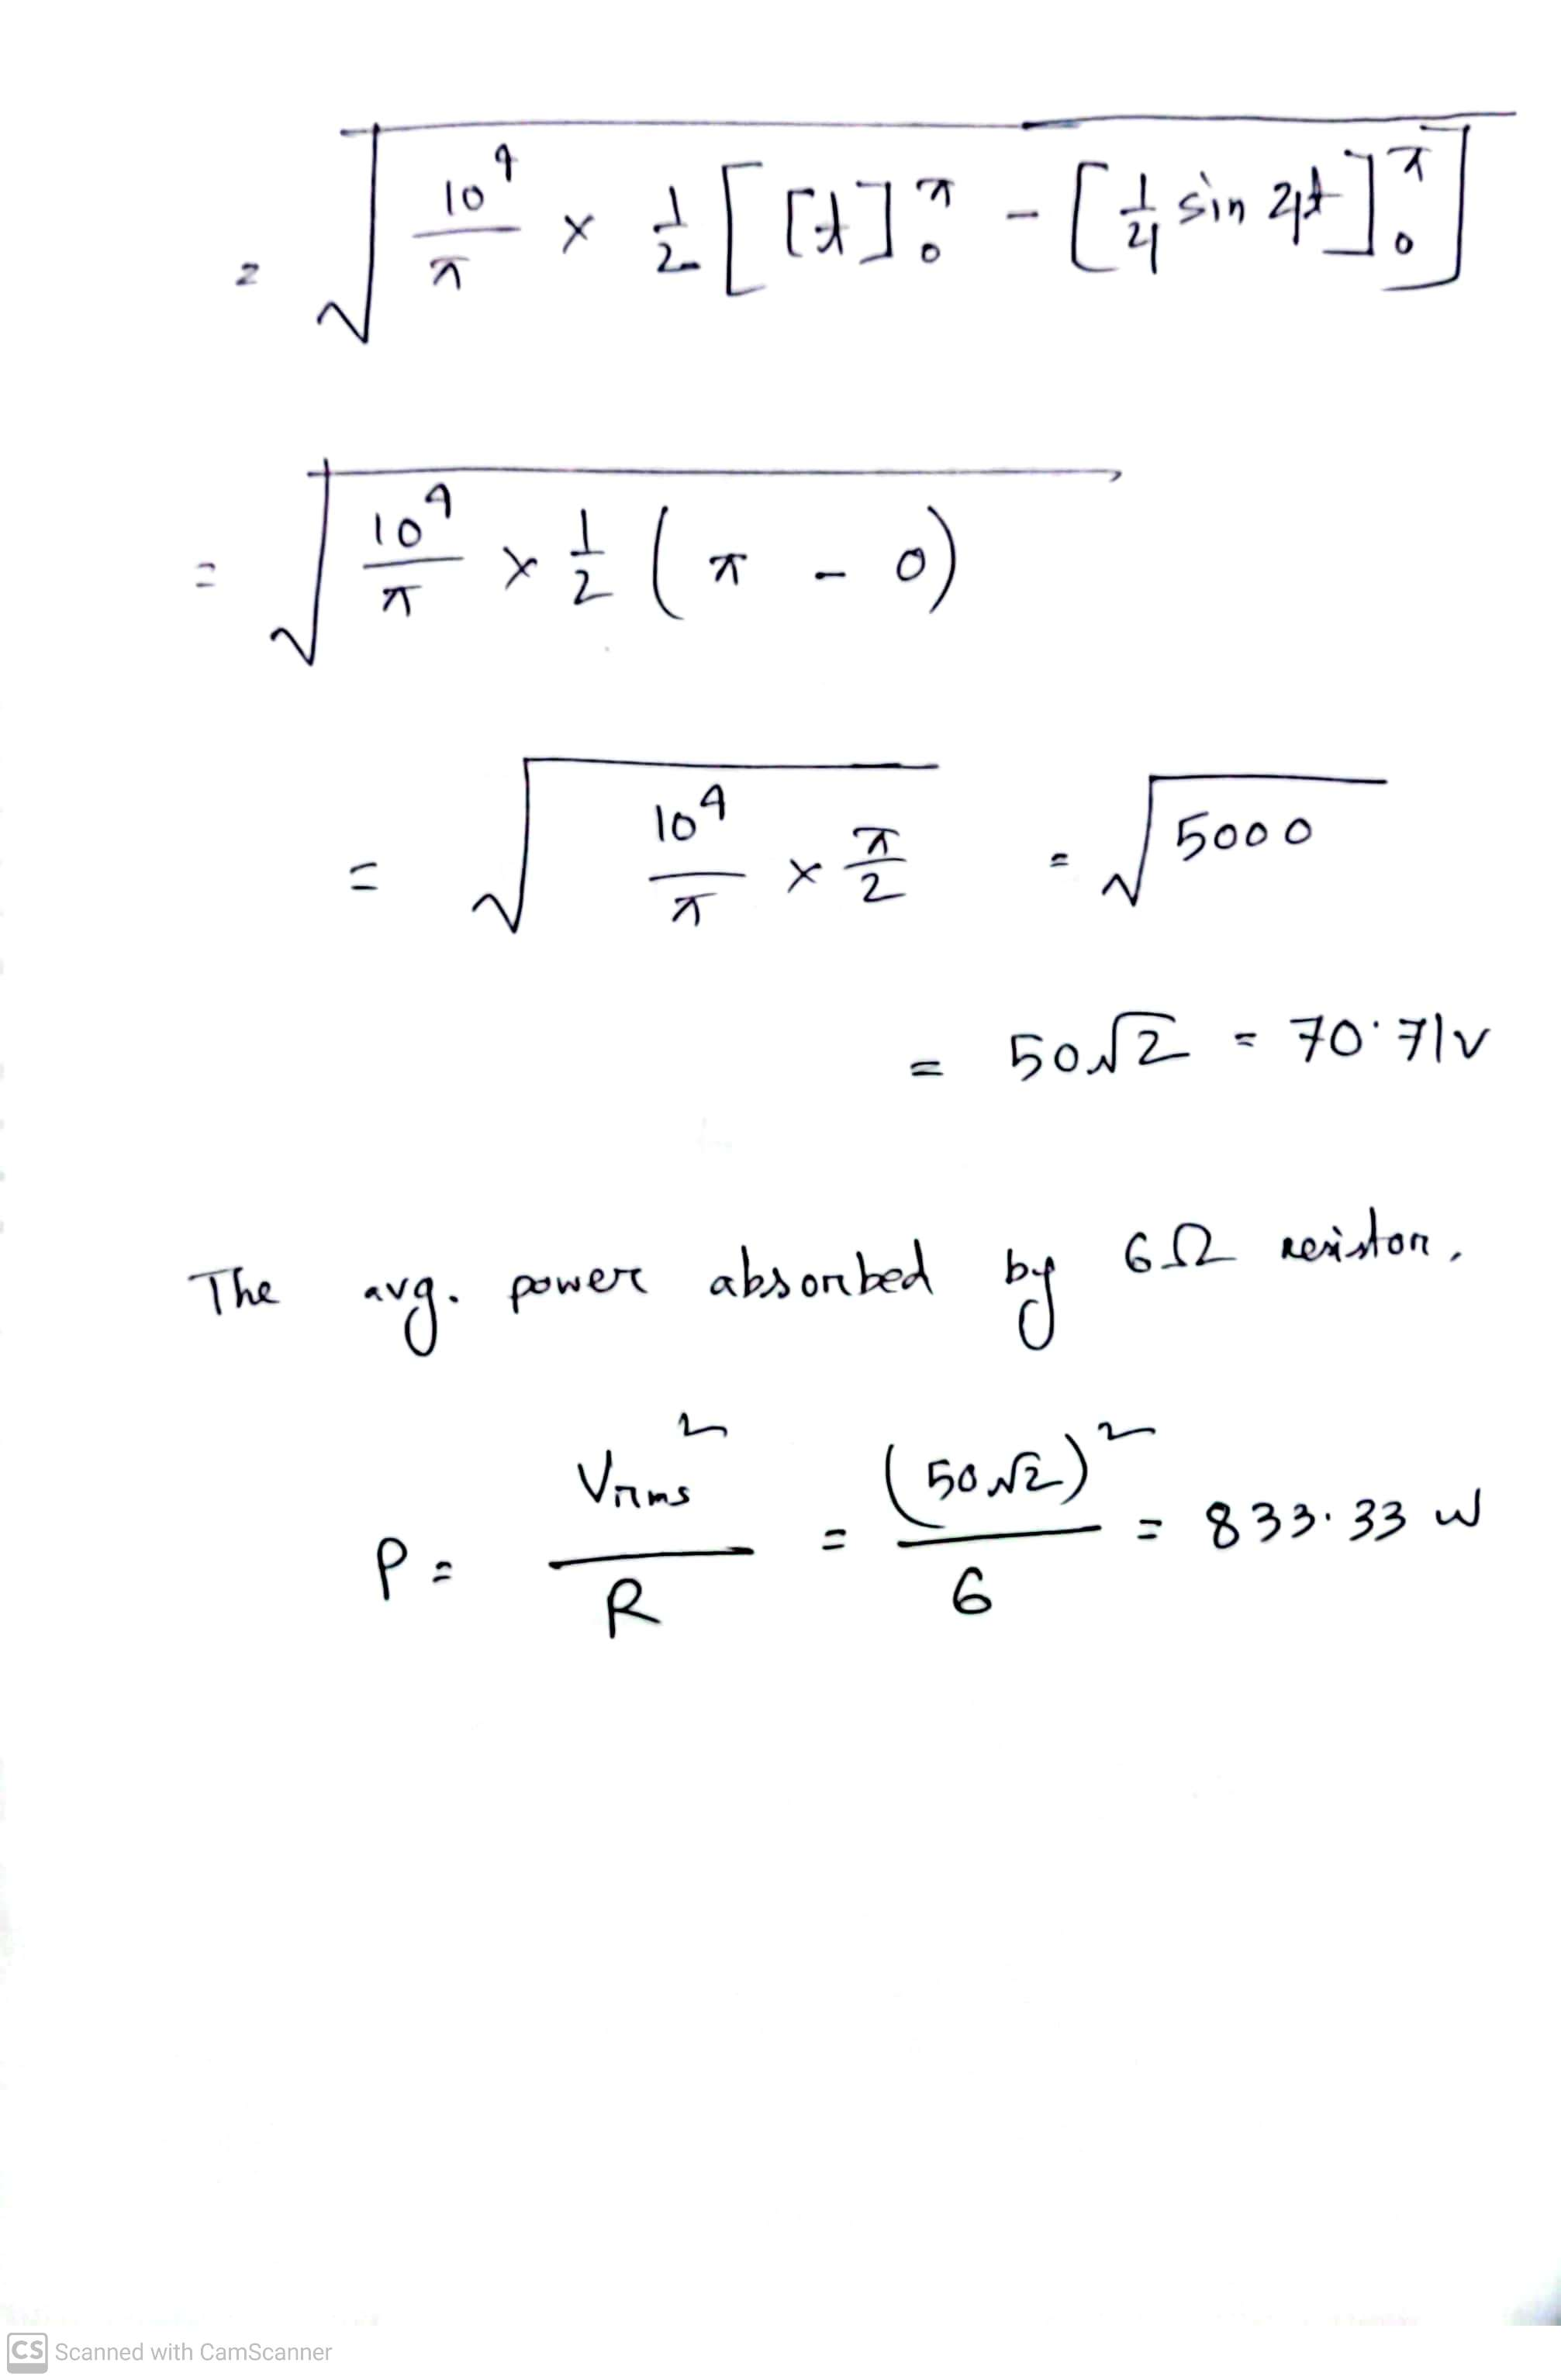 = √(10⁴/π × 1/2 [[t]₀^π − [1/4 sin 4t]₀^π])
= √(10⁴/π × 1/2 (π − 0))
= √(10⁴/π × π/2) = √5000
= 50√2 = 70.71V
The avg. power absorbed by 6Ω resistor,
P = Vrms²/R = (50√2)²/6 = 833.33 W
CS Scanned with CamScanner